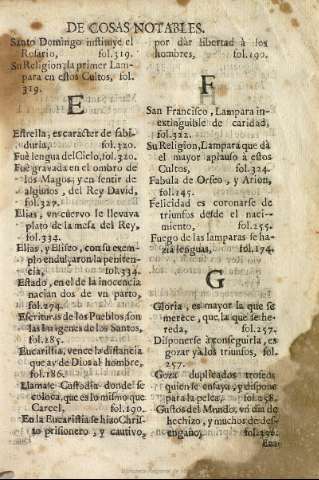 DE COSAS NOTABLES.
Santo Domingo instituye el
Rosario, fol. 319.
Su Religion, la primer Lam-
para en estos Cultos, fol.
319.
E
Estrella, es caracter de sabi-
duria, fol. 320.
Fue lengua del Cielo, fol. 320.
Fue gravada en el ombro de
los Magos; y en sentir de
algunos, del Rey David,
fol. 329.
Elias, un cuervo le llevava
plato de la mesa del Rey,
fol. 334.
Elias, y Eliseo, con su exem-
plo endulçaron la peniten-
cia, fol. 334.
Estado, en el de la inocencia
nacian dos de un parto,
fol. 274.
Escrituras de los Pueblos, son
las Imagenes de los Santos,
fol. 285.
Eucaristia, vence la distancia
que ay de Dios al hombre,
fol. 186.
Llamase Custodia donde se
coloca, que es lo mismo que
Carcel, fol. 190.
En la Eucaristia se hizo Chris-
to prisionero, y cautivo,
por dàr libertad à los
hombres, fol. 190.
F
San Francisco, Lampara in-
extinguible de caridad,
fol. 322.
Su Religion, Lampara que dà
el mayor aplauso à estos
Cultos, fol. 324.
Fabula de Orfeo, y Arion,
fol. 245.
Felicidad es coronarse de
triunfos desde el naci-
miento, fol. 255.
Fuego de las lamparas se ha-
zia lenguas, fol. 174.
G
Gloria, es mayor la que se
merece, que la que se he-
reda, fol. 257.
Disponerse à conseguirla, es
gozar yà los triunfos, fol.
257.
Goza duplicados trofeos
quien se ensaya, y dispone
para la pelea, fol. 258.
Gustos del Mundo, un dia de
hechizo, y muchos de des-
engaño, fol.